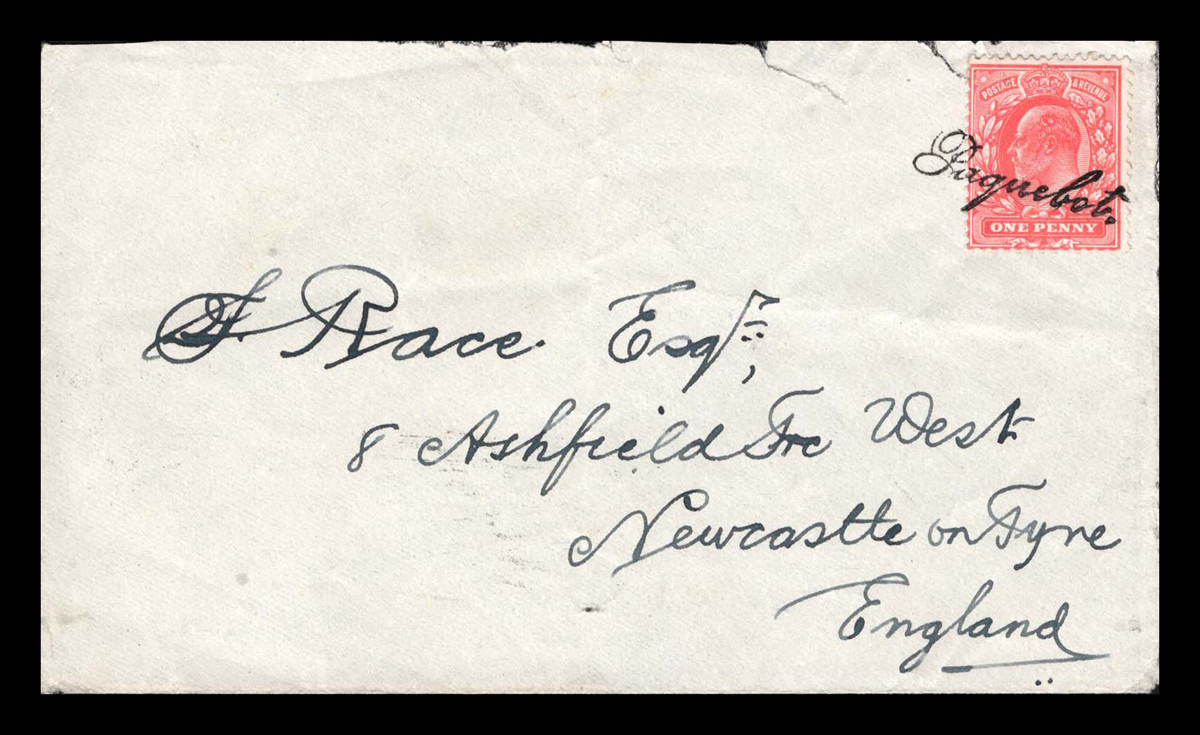 POSTAGE & REVENUE
Paquebot.
ONE PENNY
Race Esqr,
8 Ashfield Trc West
Newcastle on Tyne
England